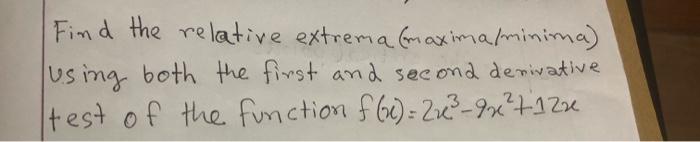 Find the relative extrema (maxima/minima)
using both the first and second derivative
test of the function f(x)=2x³-9x²+12x